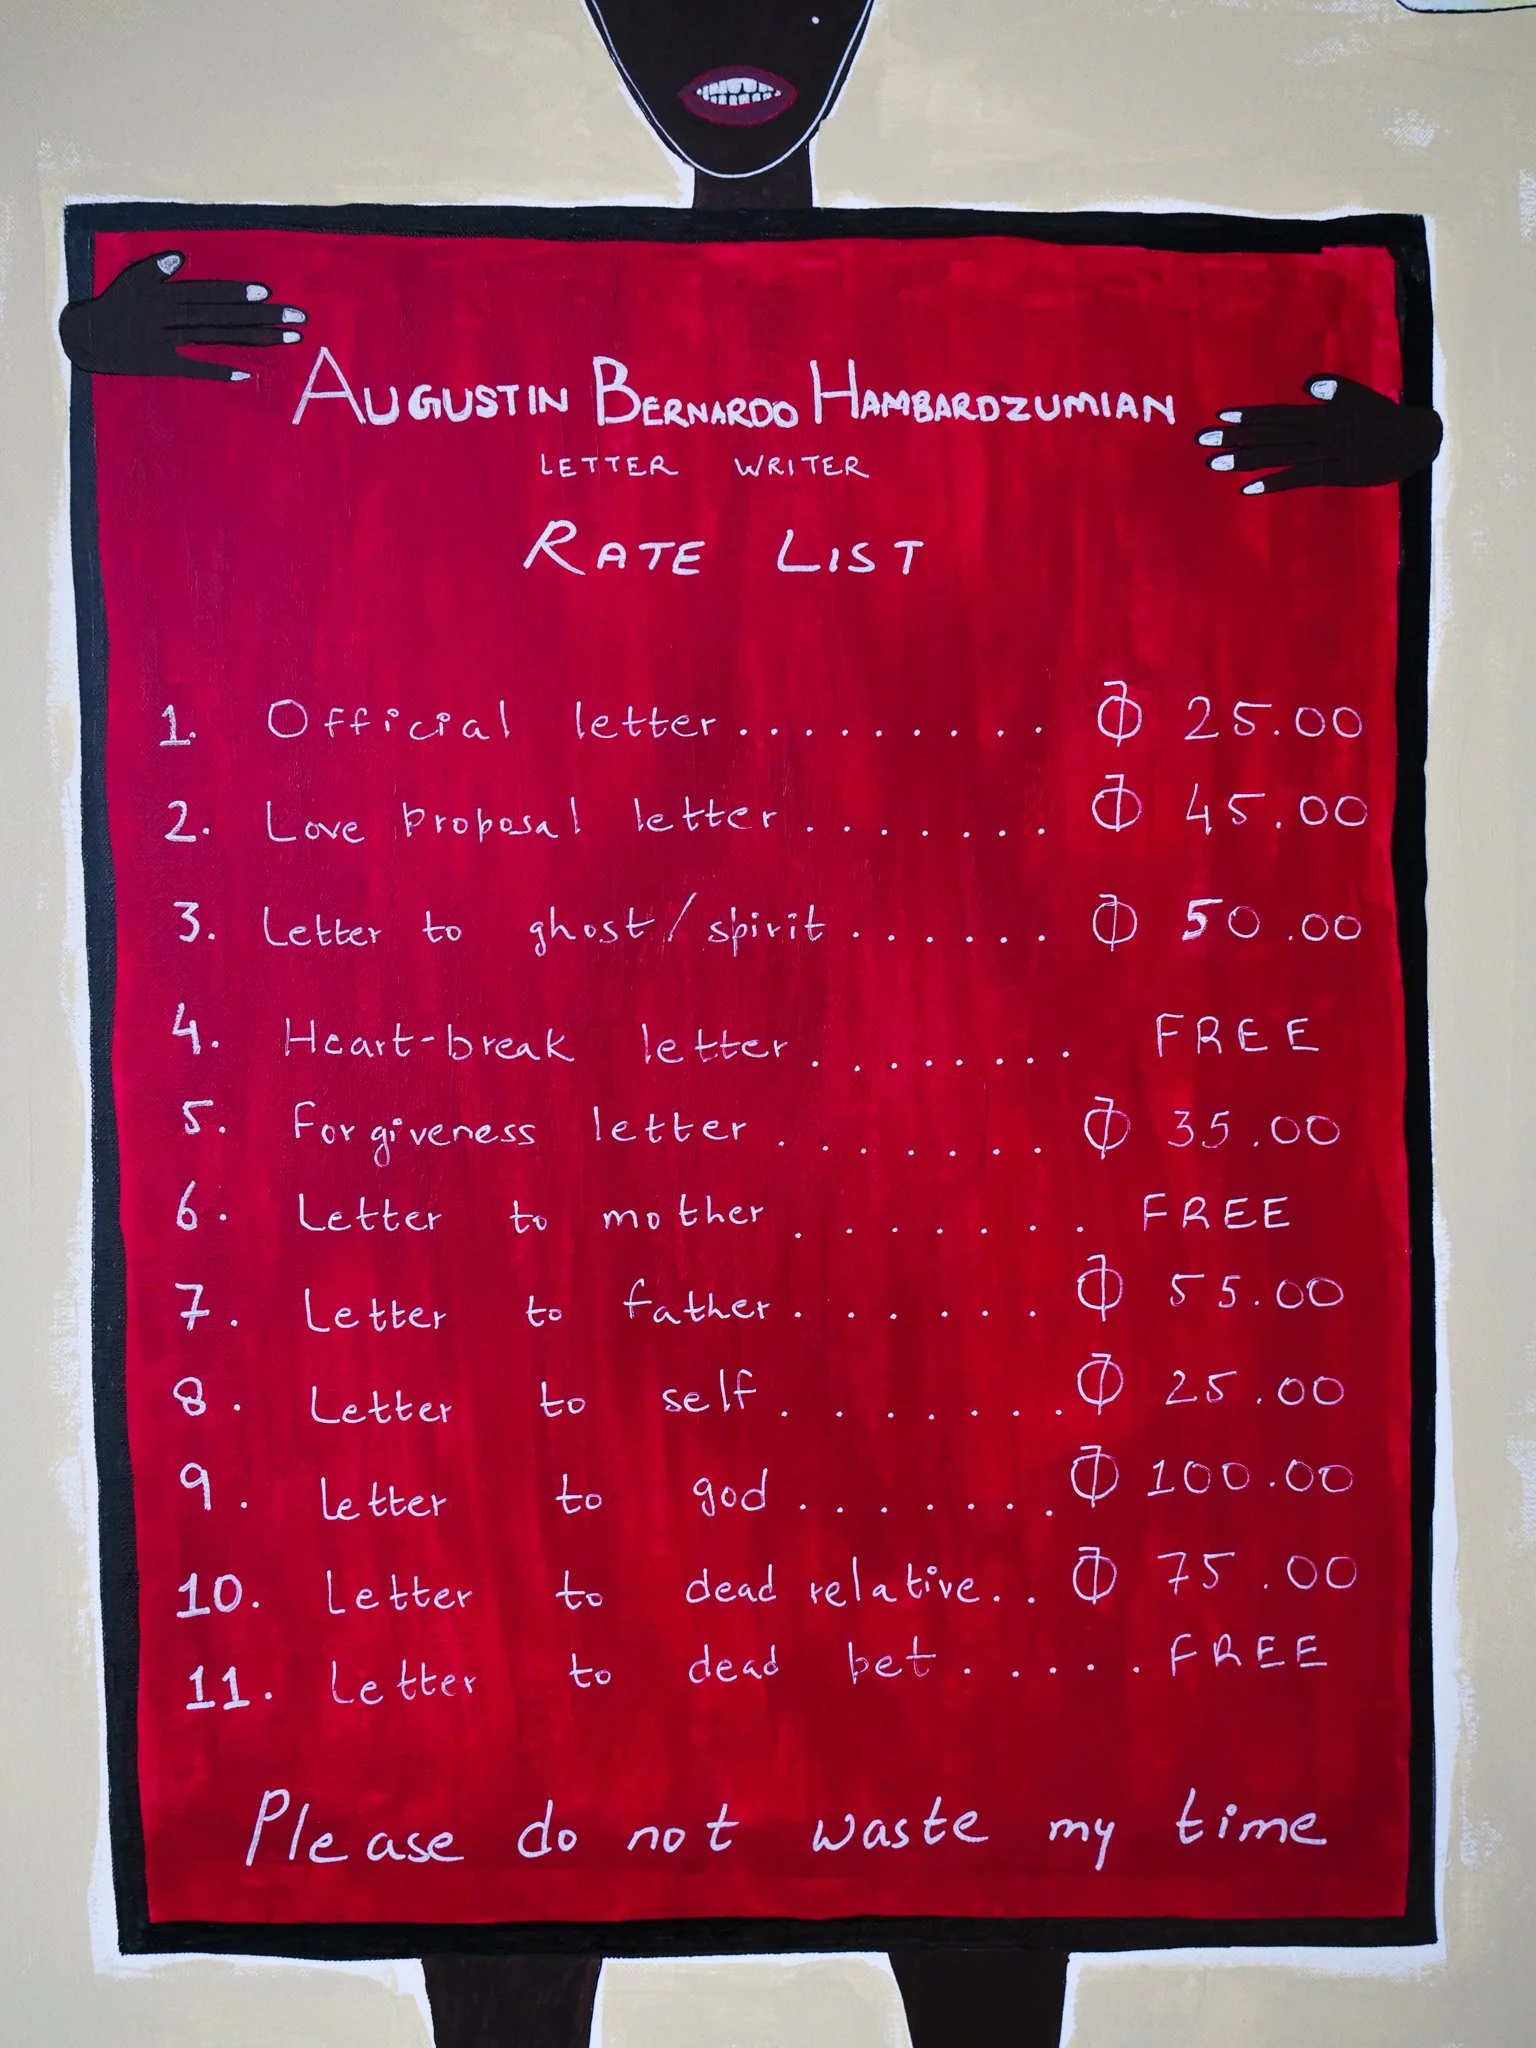 AUGUSTIN BERNARDO HAMBARDZUMIAN
LETTER WRITER
RATE LIST
1. Official letter.......... ₵ 25.00
2. Love proposal letter....... ₵ 45.00
3. Letter to ghost/spirit...... ₵ 50.00
4. Heart-break letter........ FREE
5. Forgiveness letter....... ₵ 35.00
6. Letter to mother....... FREE
7. Letter to father...... ₵ 55.00
8. Letter to self....... ₵ 25.00
9. Letter to god....... ₵ 100.00
10. Letter to dead relative.. ₵ 75.00
11. Letter to dead pet..... FREE
Please do not waste my time